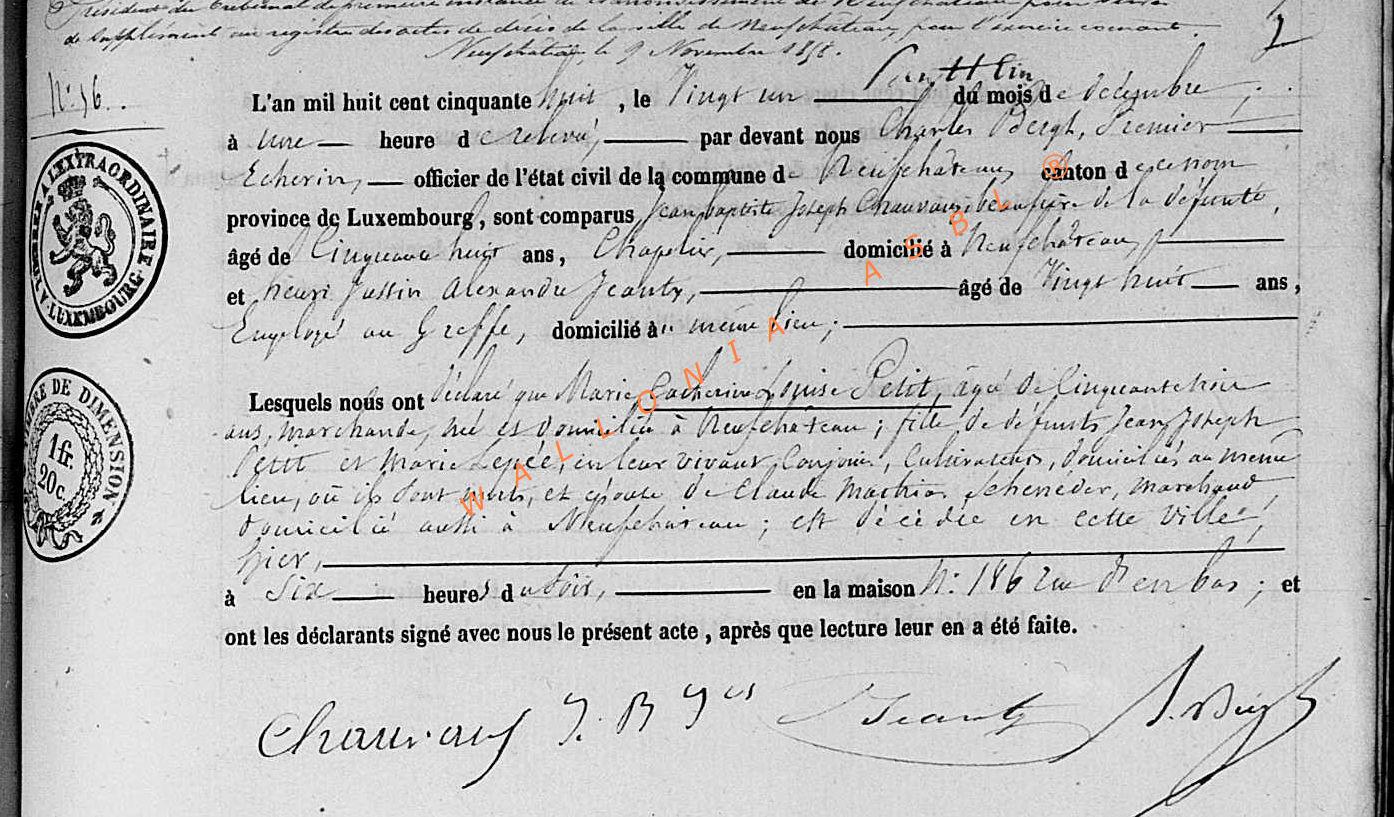 Président du Tribunal de première instance de l'arrondissement de Neufchâteau pour servir
de supplément au registre des actes de décès de la ville de Neufchâteau, pour l'exercice courant.
Neufchâteau, le 9 Novembre 1858.
2
N: 56.
L'an mil huit cent cinquante huit, le Vingt un du mois de décembre,
à une heure de relevée, par devant nous Charles Bergh, Premier
Echevin, officier de l'état civil de la commune de Neufchâteau, canton de ce nom
province de Luxembourg, sont comparus Jean baptiste Joseph Chauvaux beau frère de la défunte,
âgé de Cinquante huit ans, Chapelier, domicilié à Neufchâteau,
et henri Justin Alexandre Jeanty, âgé de Vingt huit ans,
Employé au Greffe, domicilié au même lieu;
Lesquels nous ont déclaré que Marie Catherine Louise Petit, âgée de Cinquante huit
ans, marchande, née et domiciliée à Neufchâteau; fille de défunts Jean Joseph
Petit et Marie Lepée, en leur vivant Conjoints, Cultivateurs, domiciliés au même
lieu, où ils sont morts, et épouse de Claude Mathias Scheneder, marchand
domicilié aussi à Neufchâteau; est décédée en cette Ville,
hier,
à Six heures du soir, en la maison N: 186 rue d'en bas; et
ont les déclarants signé avec nous le présent acte, après que lecture leur en a été faite.
Chauvaux J. B. Jph
Jeanty
TIMBRE A L'EXTRAORDINAIRE
LUXEMBOURG
TIMBRE DE DIMENSION
1 fr.
20 c.
WALLONIA ASBL ®